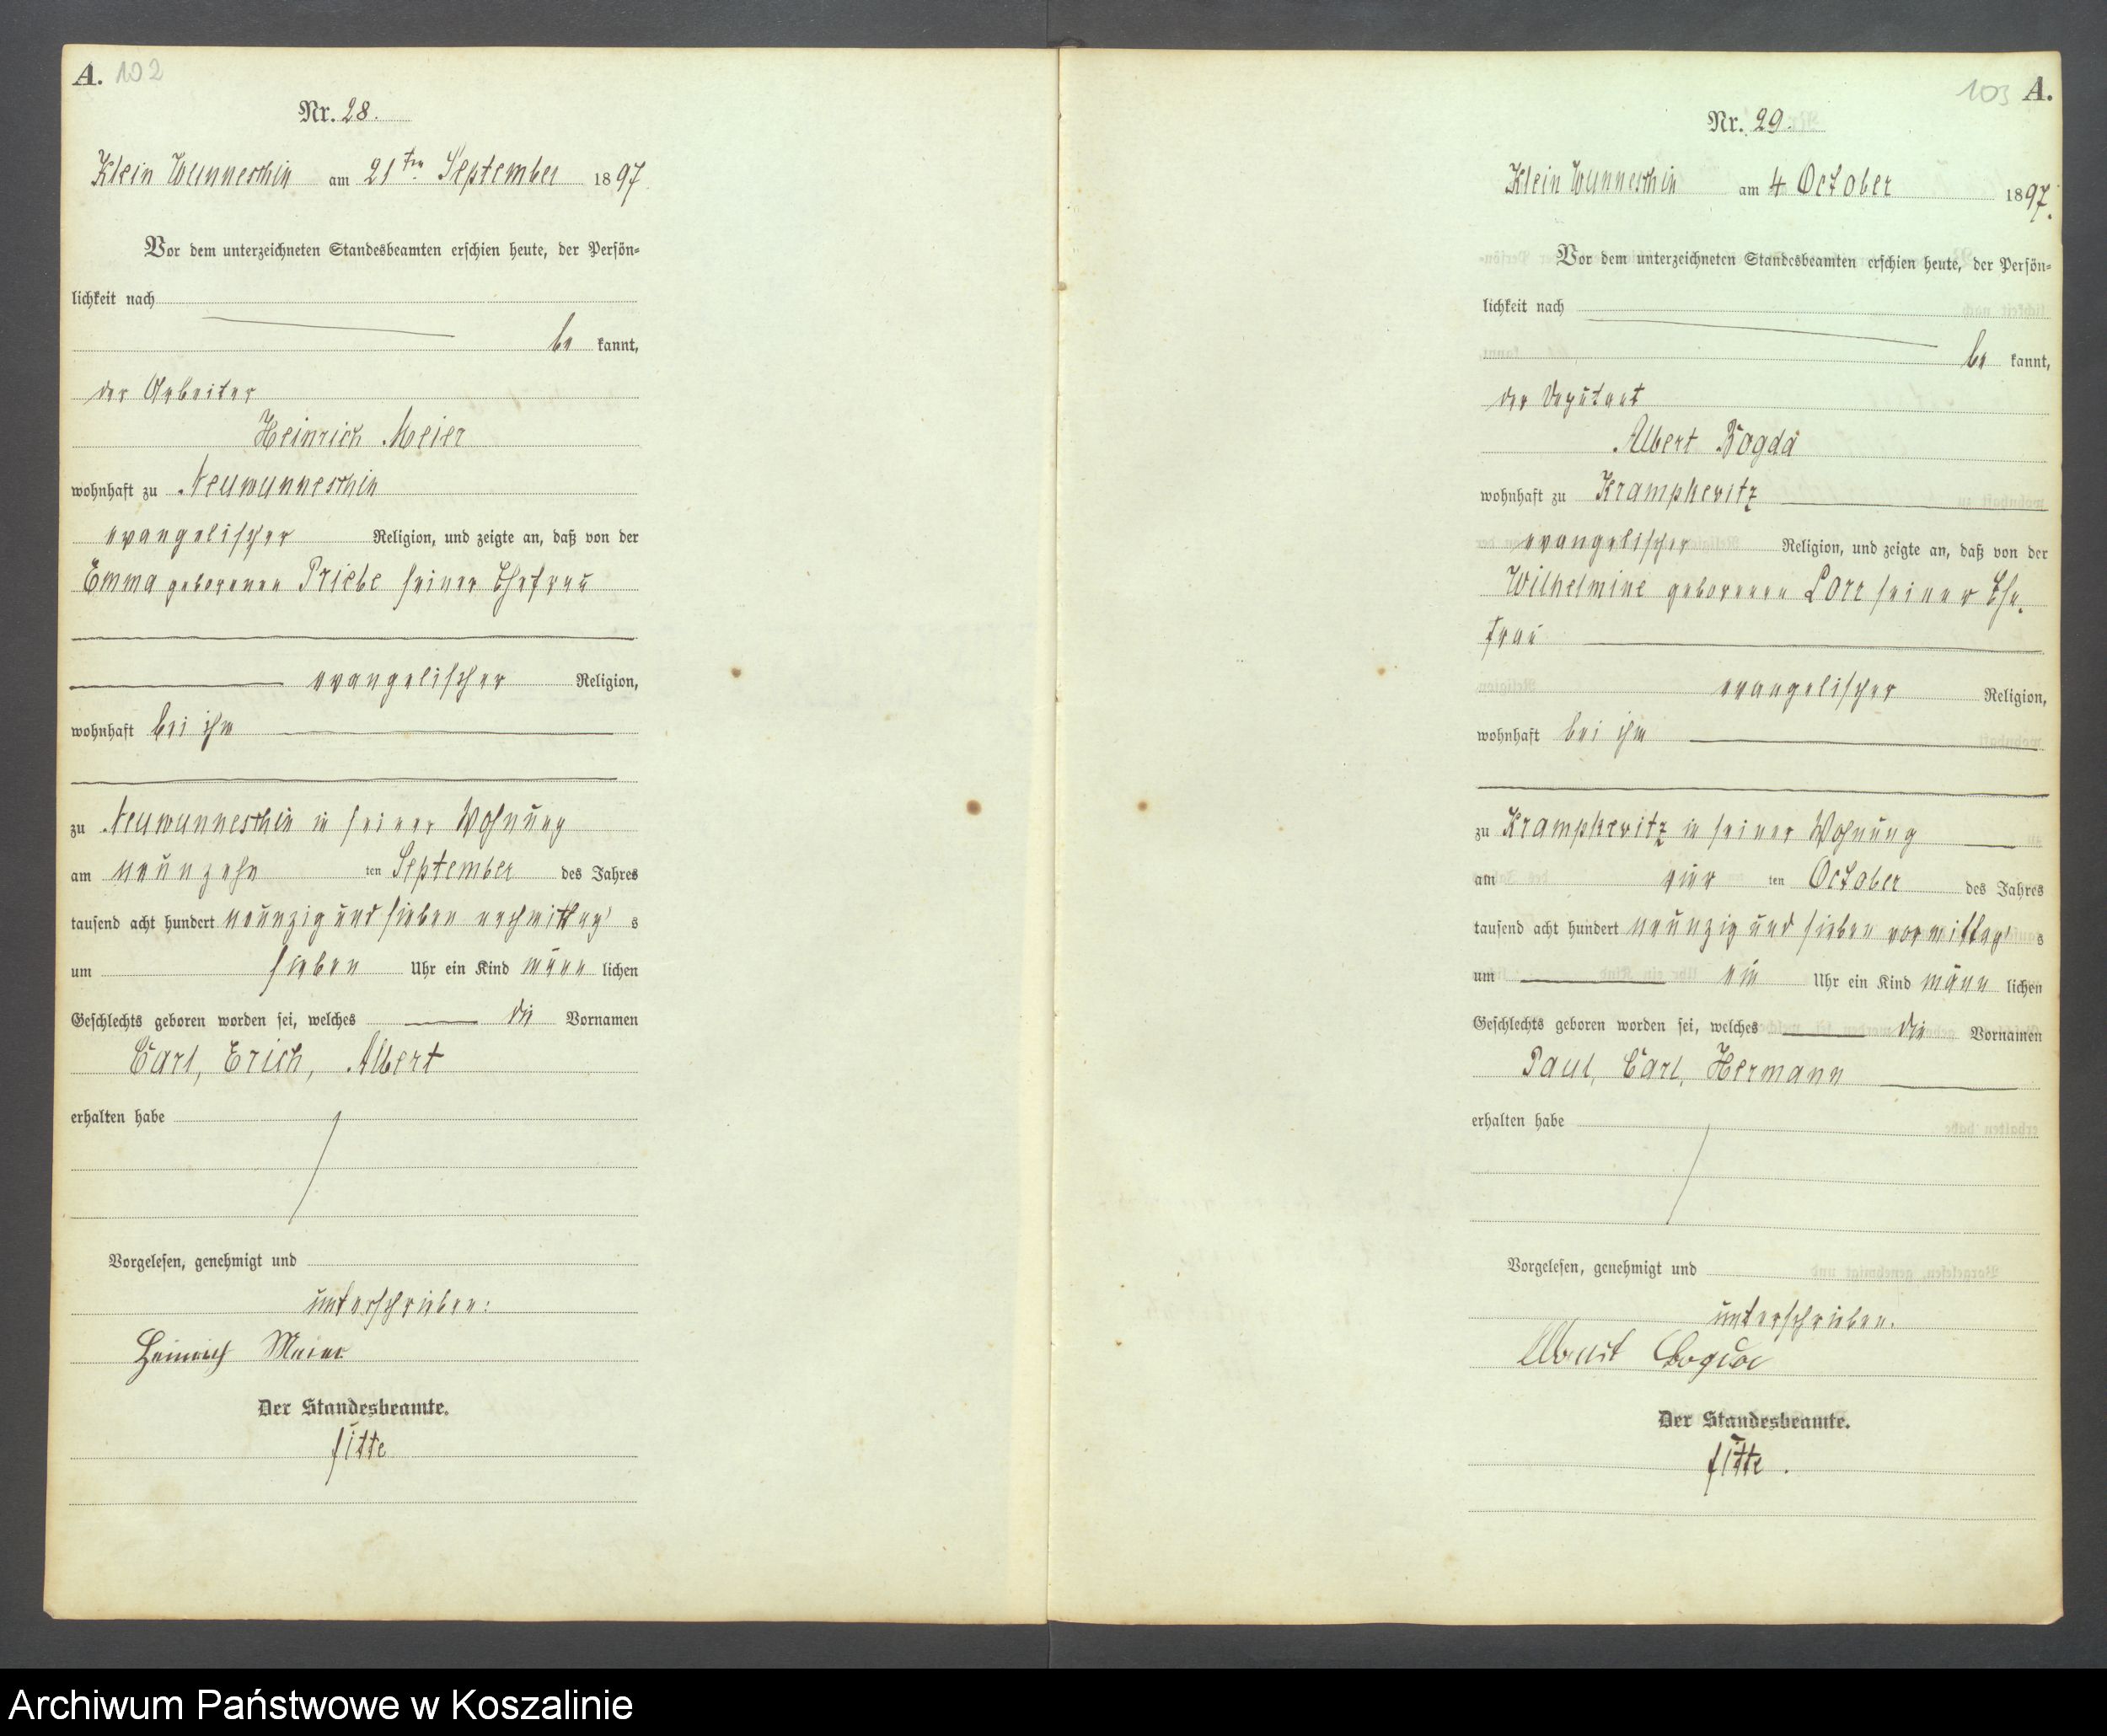 A. 102
Nr. 28.
Klein Wunneschin am 21ten September 1897.
Vor dem unterzeichneten Standesbeamten erschien heute, der Persön=
lichkeit nach
be kannt,
der Arbeiter
Heinrich Meier
wohnhaft zu Neuwunneschin
evangelischer Religion, und zeigte an, daß von der
Emma geborenen Priebe seiner Ehefrau
evangelischer Religion,
wohnhaft bei ihm
zu Neuwunneschin in seiner Wohnung
am neunzehn ten September des Jahres
tausend acht hundert neunzig und sieben nachmittag s
um sieben Uhr ein Kind männ lichen
Geschlechts geboren worden sei, welches die Vornamen
Carl, Erich, Albert
erhalten habe
Vorgelesen, genehmigt und
unterschrieben:
Heinrich Meier
Der Standesbeamte.
103 A.
Nr. 29.
Klein Wunneschin am 4 October 1897.
Vor dem unterzeichneten Standesbeamten erschien heute, der Persön=
lichkeit nach
be kannt,
der Deputant
Albert Bogda
wohnhaft zu Krampkewitz
evangelischer Religion, und zeigte an, daß von der
Wilhelmine geborenen Lorr seiner Ehe-
frau
evangelischer Religion,
wohnhaft bei ihm
zu Krampkewitz in seiner Wohnung
am vier ten October des Jahres
tausend acht hundert neunzig und sieben vormittag s
um ein Uhr ein Kind männ lichen
Geschlechts geboren worden sei, welches die Vornamen
Paul, Carl, Hermann
erhalten habe
Vorgelesen, genehmigt und
unterschrieben.
Der Standesbeamte.
Archiwum Państwowe w Koszalinie